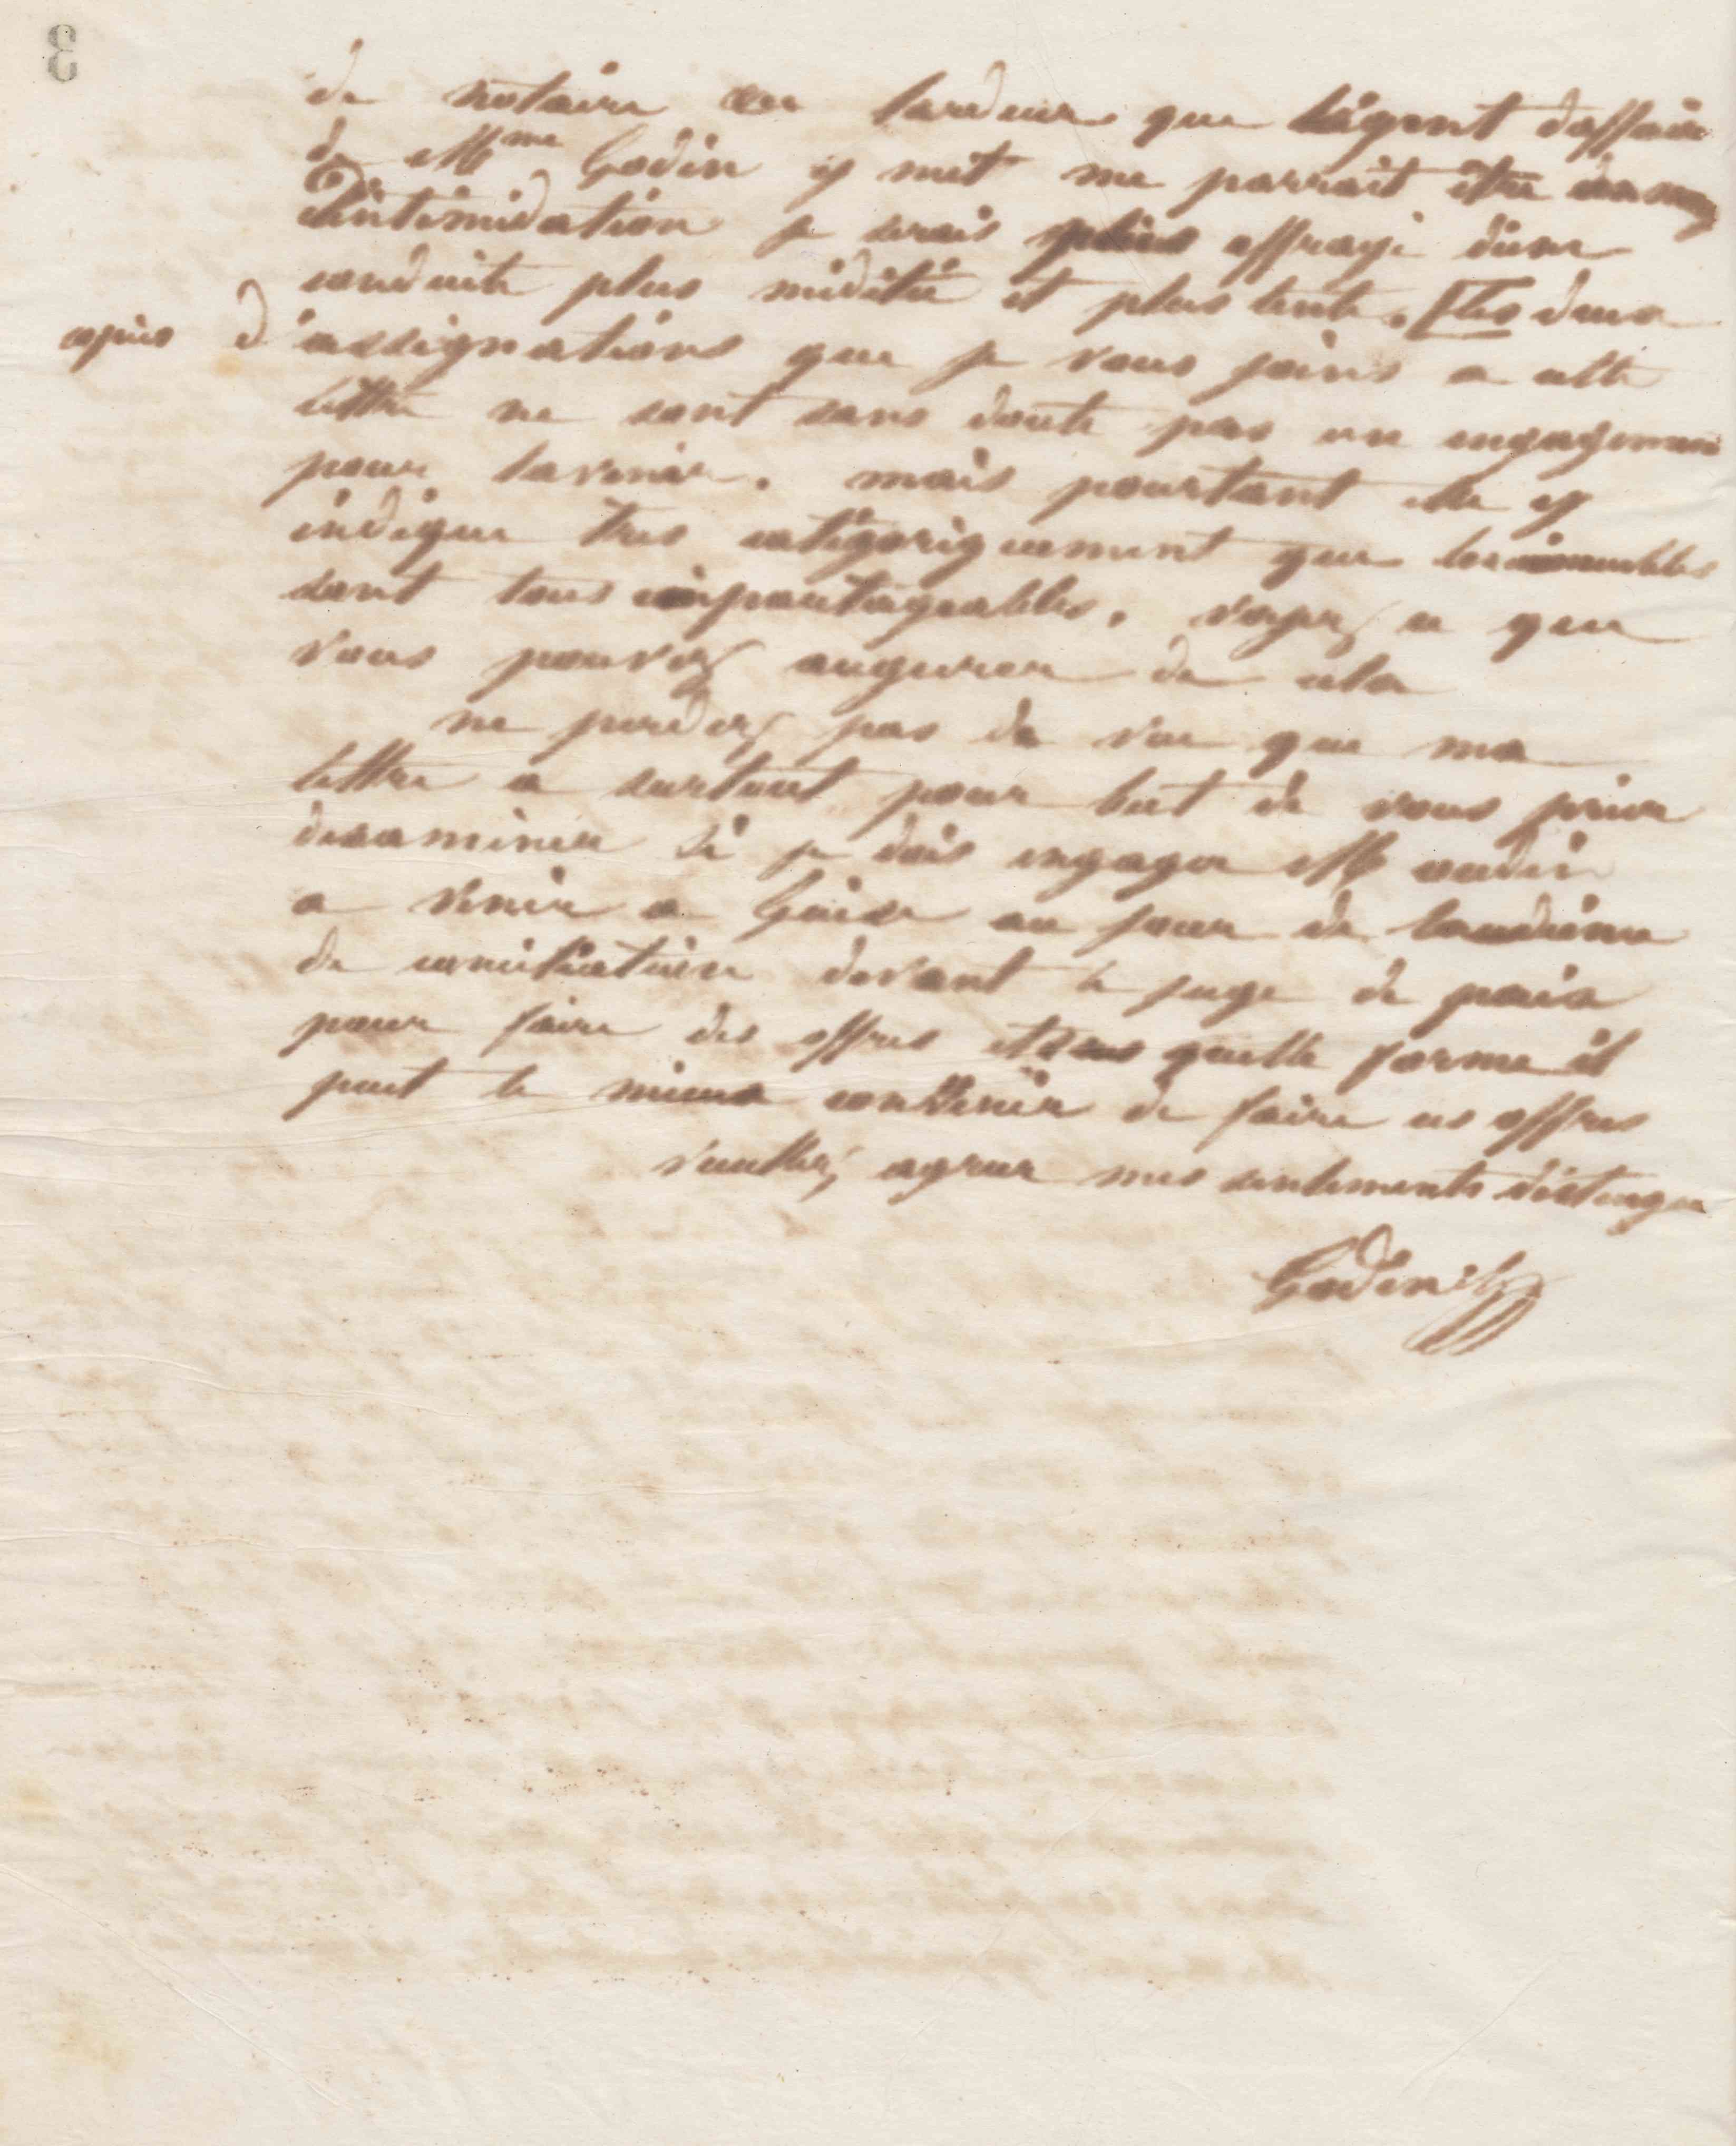 3
de notaire lardeur que l'agent daffaire
de Mme Godin y met me parrait être dans
d'intimidation je serais plus effrayé dune
conduite plus méditée et plus lente. [Les deux
copies d'assignations que je vous joins a cette
lettre ne sont sans doute pas un engagement
pour lavenir. mais pourtant elle y
indique tres catégoriquement que les immeubles
sont tous impartageables. voyez ce que
vous pouvez augurer de cela
ne perdez pas de vue que ma
lettre a surtout pour but de vous prier
dexaminer si je dois engager M
a venir a Guise au jour de laudience
de conciliation devant le juge de paix
pour faire des offres et sous quelle forme il
peut le mieux convenir de faire ces offres
veuillez agreer mes sentiments distingués
Godin